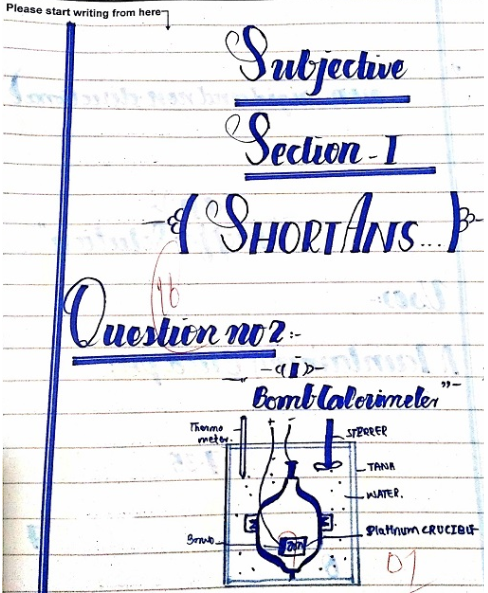 Please start writing from here
Subjective
Section - I
(SHORT ANS...)
16
Question no 2:-
-(I)-
"Bomb Calorimeter"-
Thermo
meter.
+ -
STERRER
TANK
WATER.
Platinum CRUCIBLE
Bomb
01